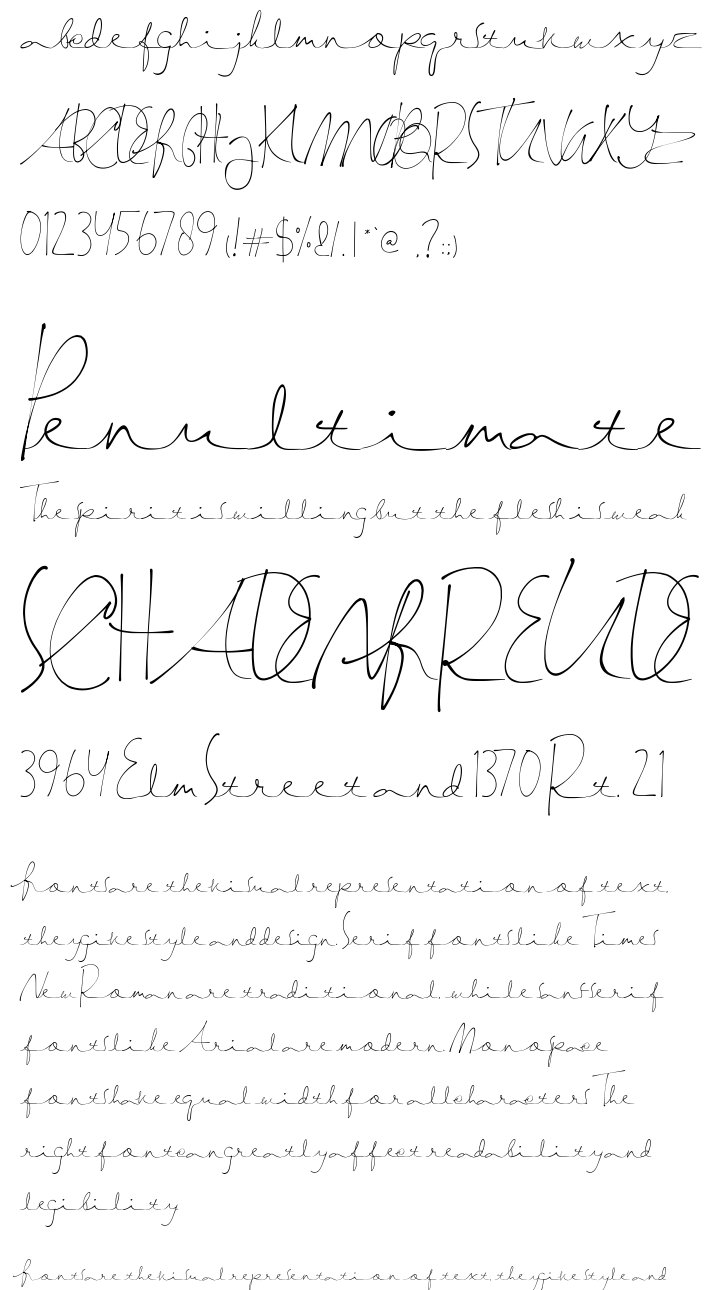 abcdefghijklmnopqrstuvwxyz
ABCDEFGHJKLMNOPQRSTUVWXYZ
0123456789(!#$%&/.|*`@ .?:;)
Penultimate
The spirit is willing but the flesh is weak
SCHADENFREUDE
3964 Elm Street and 1370 Rt. 21
Fonts are the visual representation of text,
they give style and design. Serif fonts like Times
New Roman are traditional, while sans serif
fonts like Arial are modern. Monospace
fonts have equal width for all characters The
right font can greatly affect readability and
legibility
Fonts are the visual representation of text, they give style and